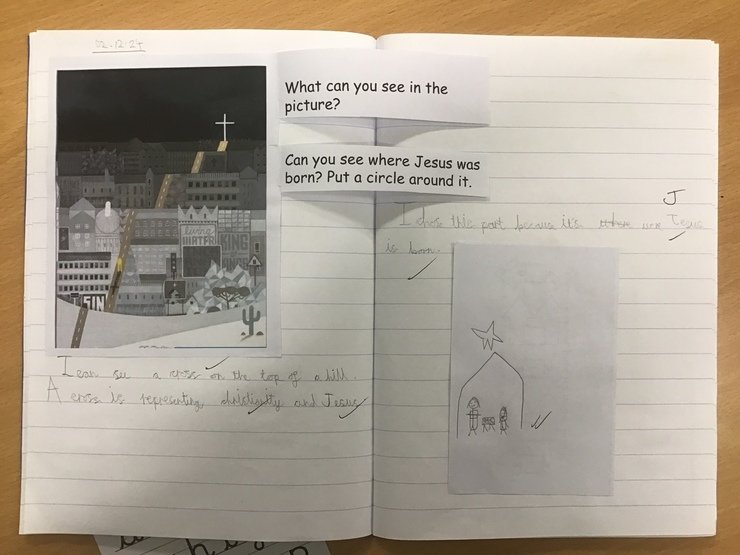 02.12.24
What can you see in the
picture?
Can you see where Jesus was
born? Put a circle around it.
living
WATER
KING
SIN
I can see a cross on the top of a hill.
A cross is representing christianity and Jesus
J
I chose this part because it's where were Jesus
is born.